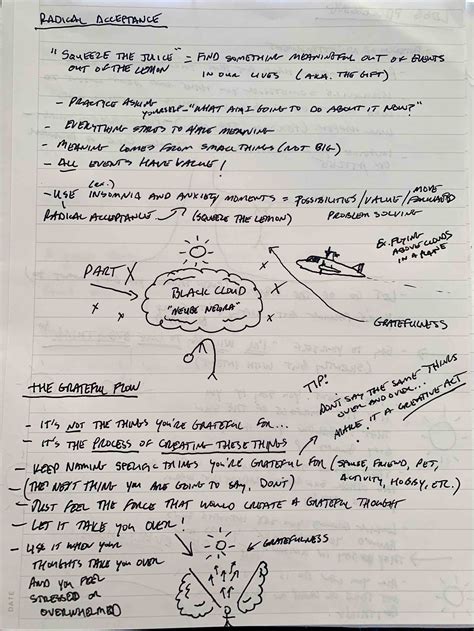 RADICAL ACCEPTANCE
"SQUEEZE THE JUICE" = FIND SOMETHING MEANINGFUL OUT OF EVENTS
OUT OF THE LEMON IN OUR LIVES (A.K.A. THE GIFT)
- PRACTICE ASKING
YOURSELF - "WHAT AM I GOING TO DO ABOUT IT NOW?"
- EVERYTHING STARTS TO HAVE MEANING
- MEANING COMES FROM SMALL THINGS (NOT BIG)
- ALL EVENTS HAVE VALUE!
(ex.)
- USE INSOMNIA AND ANXIETY MOMENTS = POSSIBILITIES/VALUE/MOVE FORWARD
RADICAL ACCEPTANCE (SQUEEZE THE LEMON) PROBLEM SOLVING
Ex. FLYING
ABOVE CLOUDS
IN A PLANE
PART X
BLACK CLOUD
"NEUBE NEGRA"
GRATEFULNESS
THE GRATEFUL FLOW
TIP:
DON'T SAY THE SAME THING
OVER AND OVER...
MAKE IT A CREATIVE ACT
- IT'S NOT THE THINGS YOU'RE GRATEFUL FOR...
- IT'S THE PROCESS OF CREATING THESE THINGS
- KEEP NAMING SPECIFIC THINGS YOU'RE GRATEFUL FOR (SPOUSE, FRIEND, PET,
ACTIVITY, HOBBY, ETC.)
- (THE NEXT THING YOU ARE GOING TO SAY, DON'T)
- JUST FEEL THE FORCE THAT WOULD CREATE A GRATEFUL THOUGHT
- LET IT TAKE YOU OVER!
- USE IT WHEN YOUR
THOUGHTS TAKE YOU OVER
AND YOU FEEL
STRESSED OR
OVERWHELMED
GRATEFULNESS
DATE